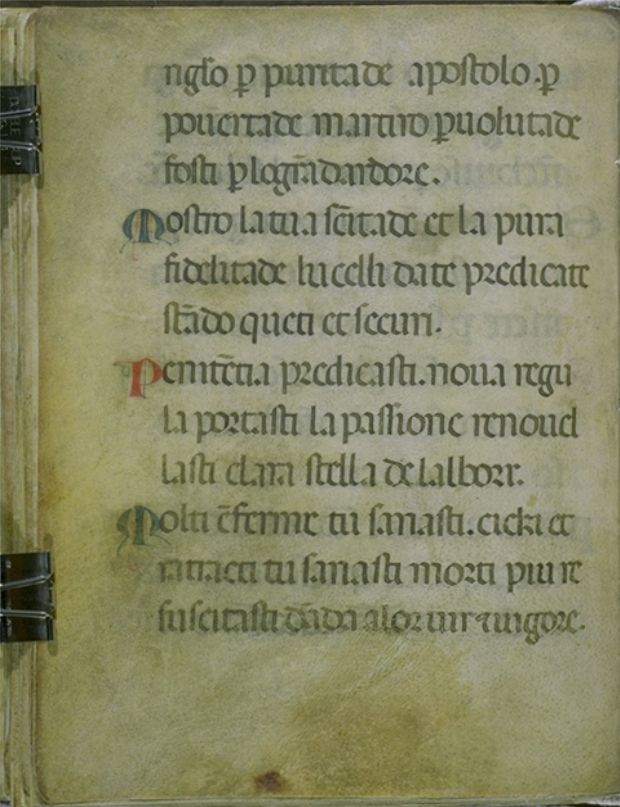 nglo ꝑ puritade apostolo.ꝑ
pouertade martiro ꝑuolutade
fosti ꝑlogrādardore.
Mostro latua scītade et la pura
fidelitade lucelli date predicate
stādo queti et securi.
Penitētia predicasti.noua regu
la portasti la passione renouel
lasti clara stella de lalborr.
Molti ēferme tu sanasti.ciechi et
ratracti tu sanasti morti piu re
suscitasti dādo alor uir ⁊uigore.